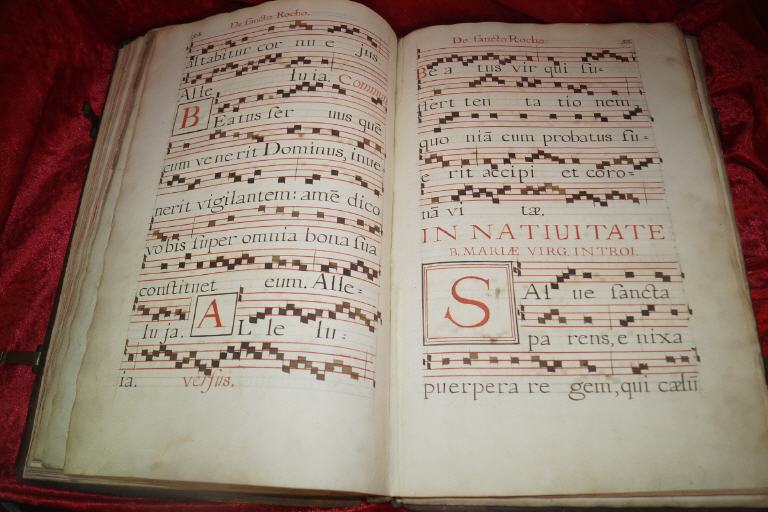 De sancto Rocho.
ltabitur cor mu e jus.
Alle lu ia. Commun
BEatus ser uus quē
cum ve ne rit Dominus, inue-
nerit vigilantem: amē dico
vobis super omnia bona sua
constituet eum. Alle-
lu ja. AL le lu-
ia. versus.
De sancto Rocho.
Be a tus vir qui su-
ffert ten ta tio nem,
quo niā cum probatus fu-
e rit accipi et coro-
nā vi tæ.
IN NATIUITATE
B. MARIÆ VIRG. INTROI.
SAl ue sancta
pa rens, e nixa
puerpera re gem, qui cælū